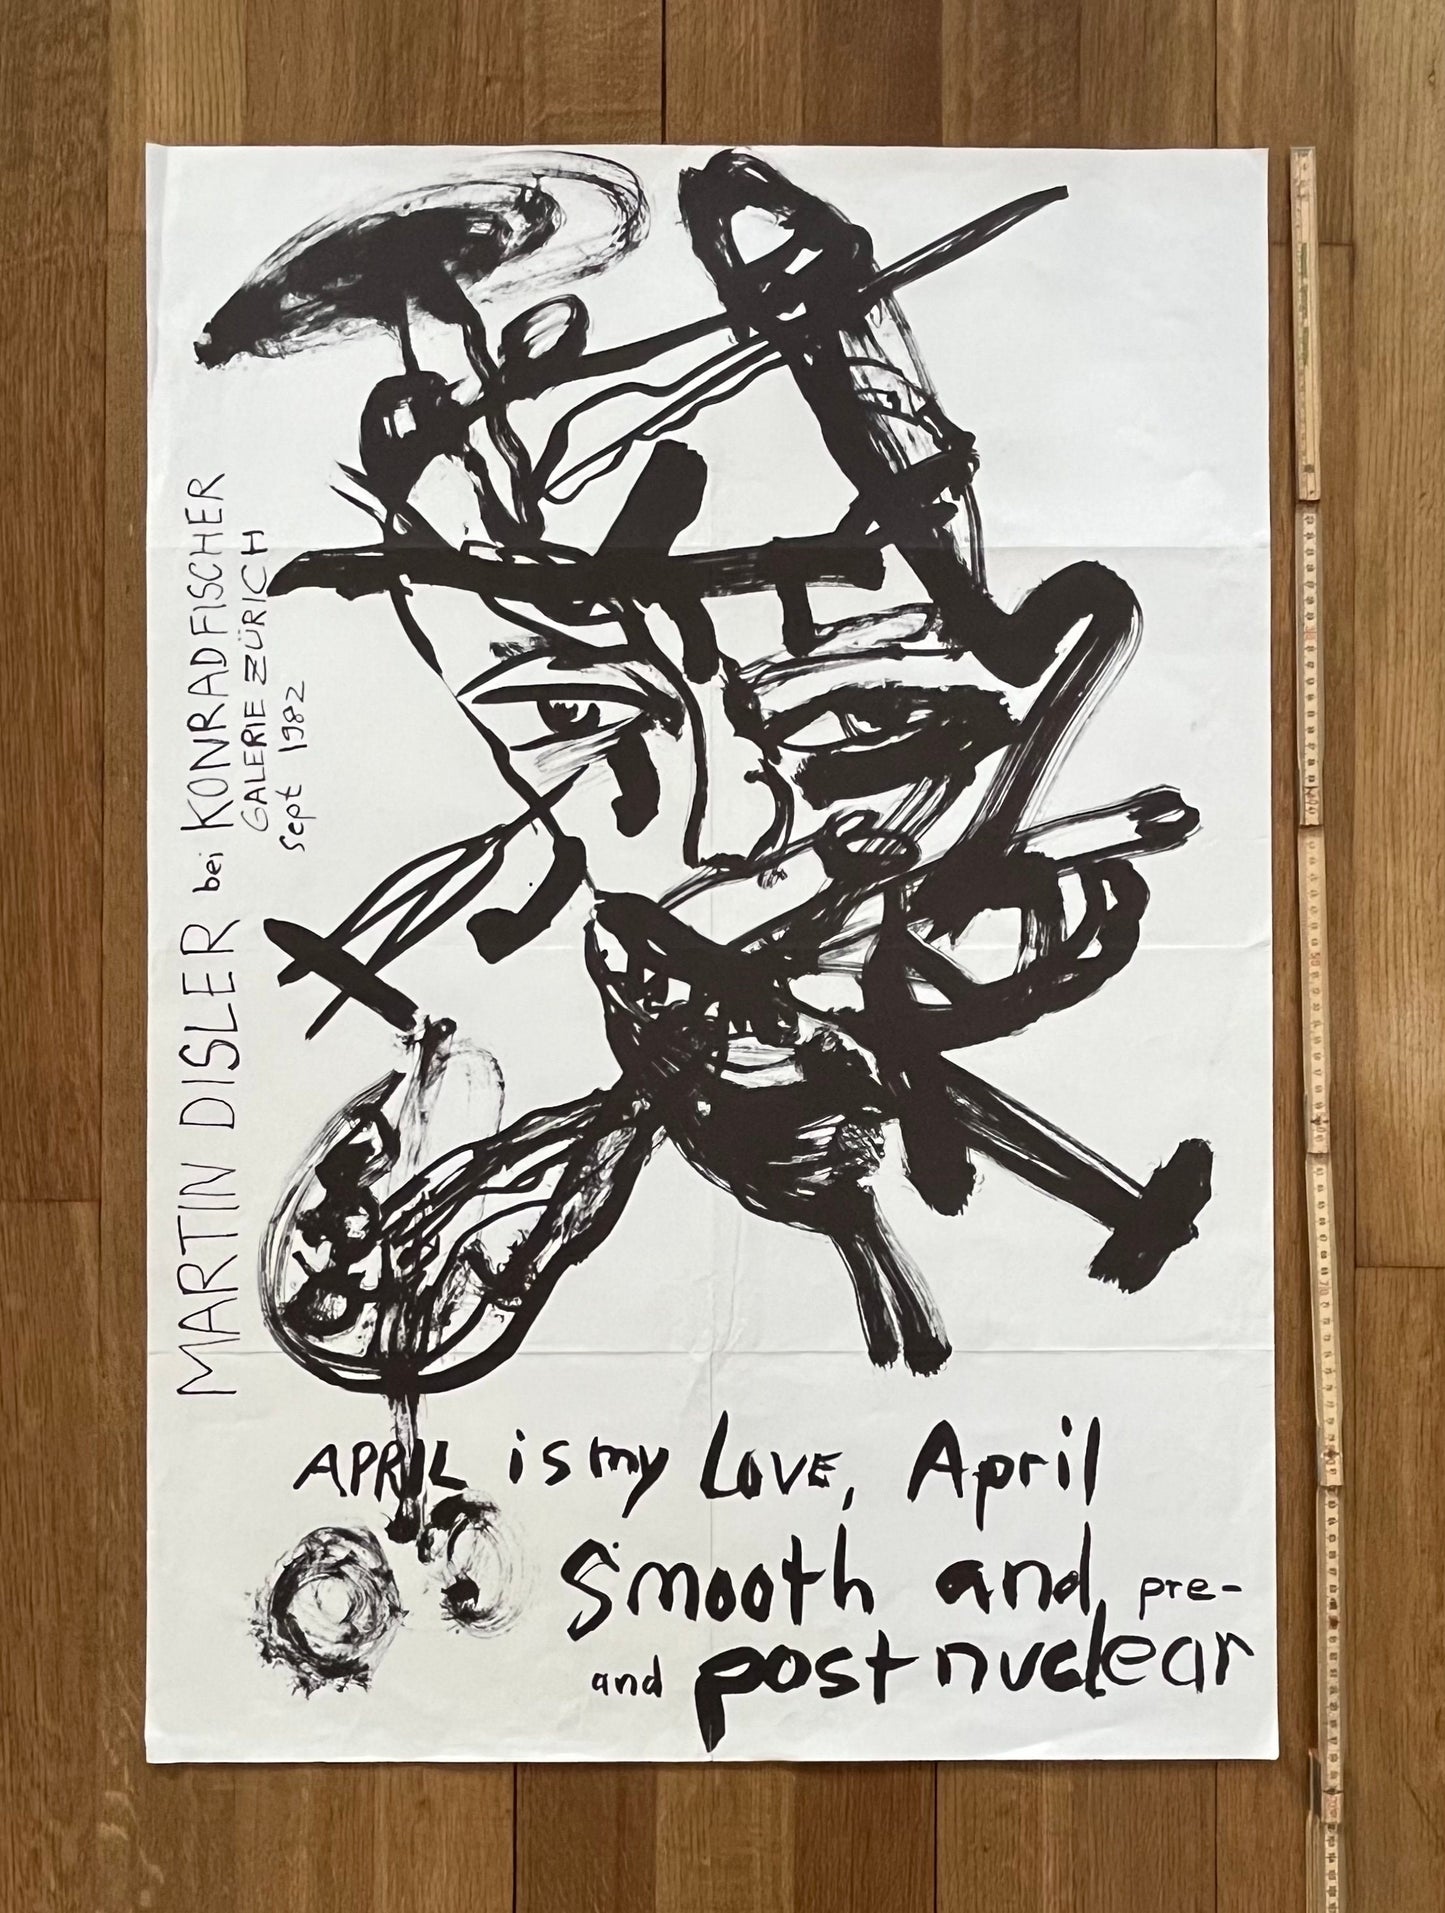 MARTIN DISLER bei KONRAD FISCHER
GALERIE ZÜRICH
Sept 1982
APRIL is my LOVE, April
Smooth and pre-
and postnuclear